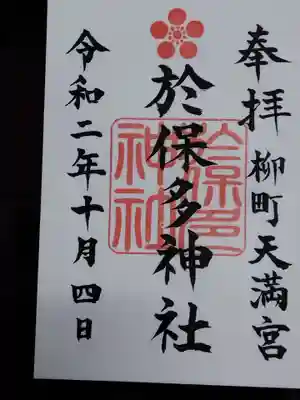 奉拝 柳町天満宮
於保多神社
令和二年十月四日
於保多神社